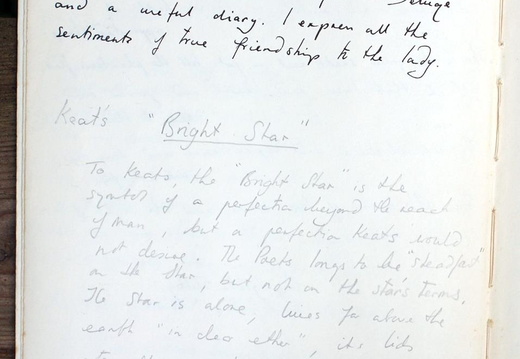 and a useful diary. I express all the
sentiments of true friendship to the lady.
Keat's "Bright Star"
To Keats, the "Bright Star" is the
symbol of a perfection beyond the reach
of man, but a perfection Keats would
not desire. The Poets longs to be "steadfast"
as the Star, but not on the star's terms.
The Star is alone, lives far above the
earth "in clear ether", its lids